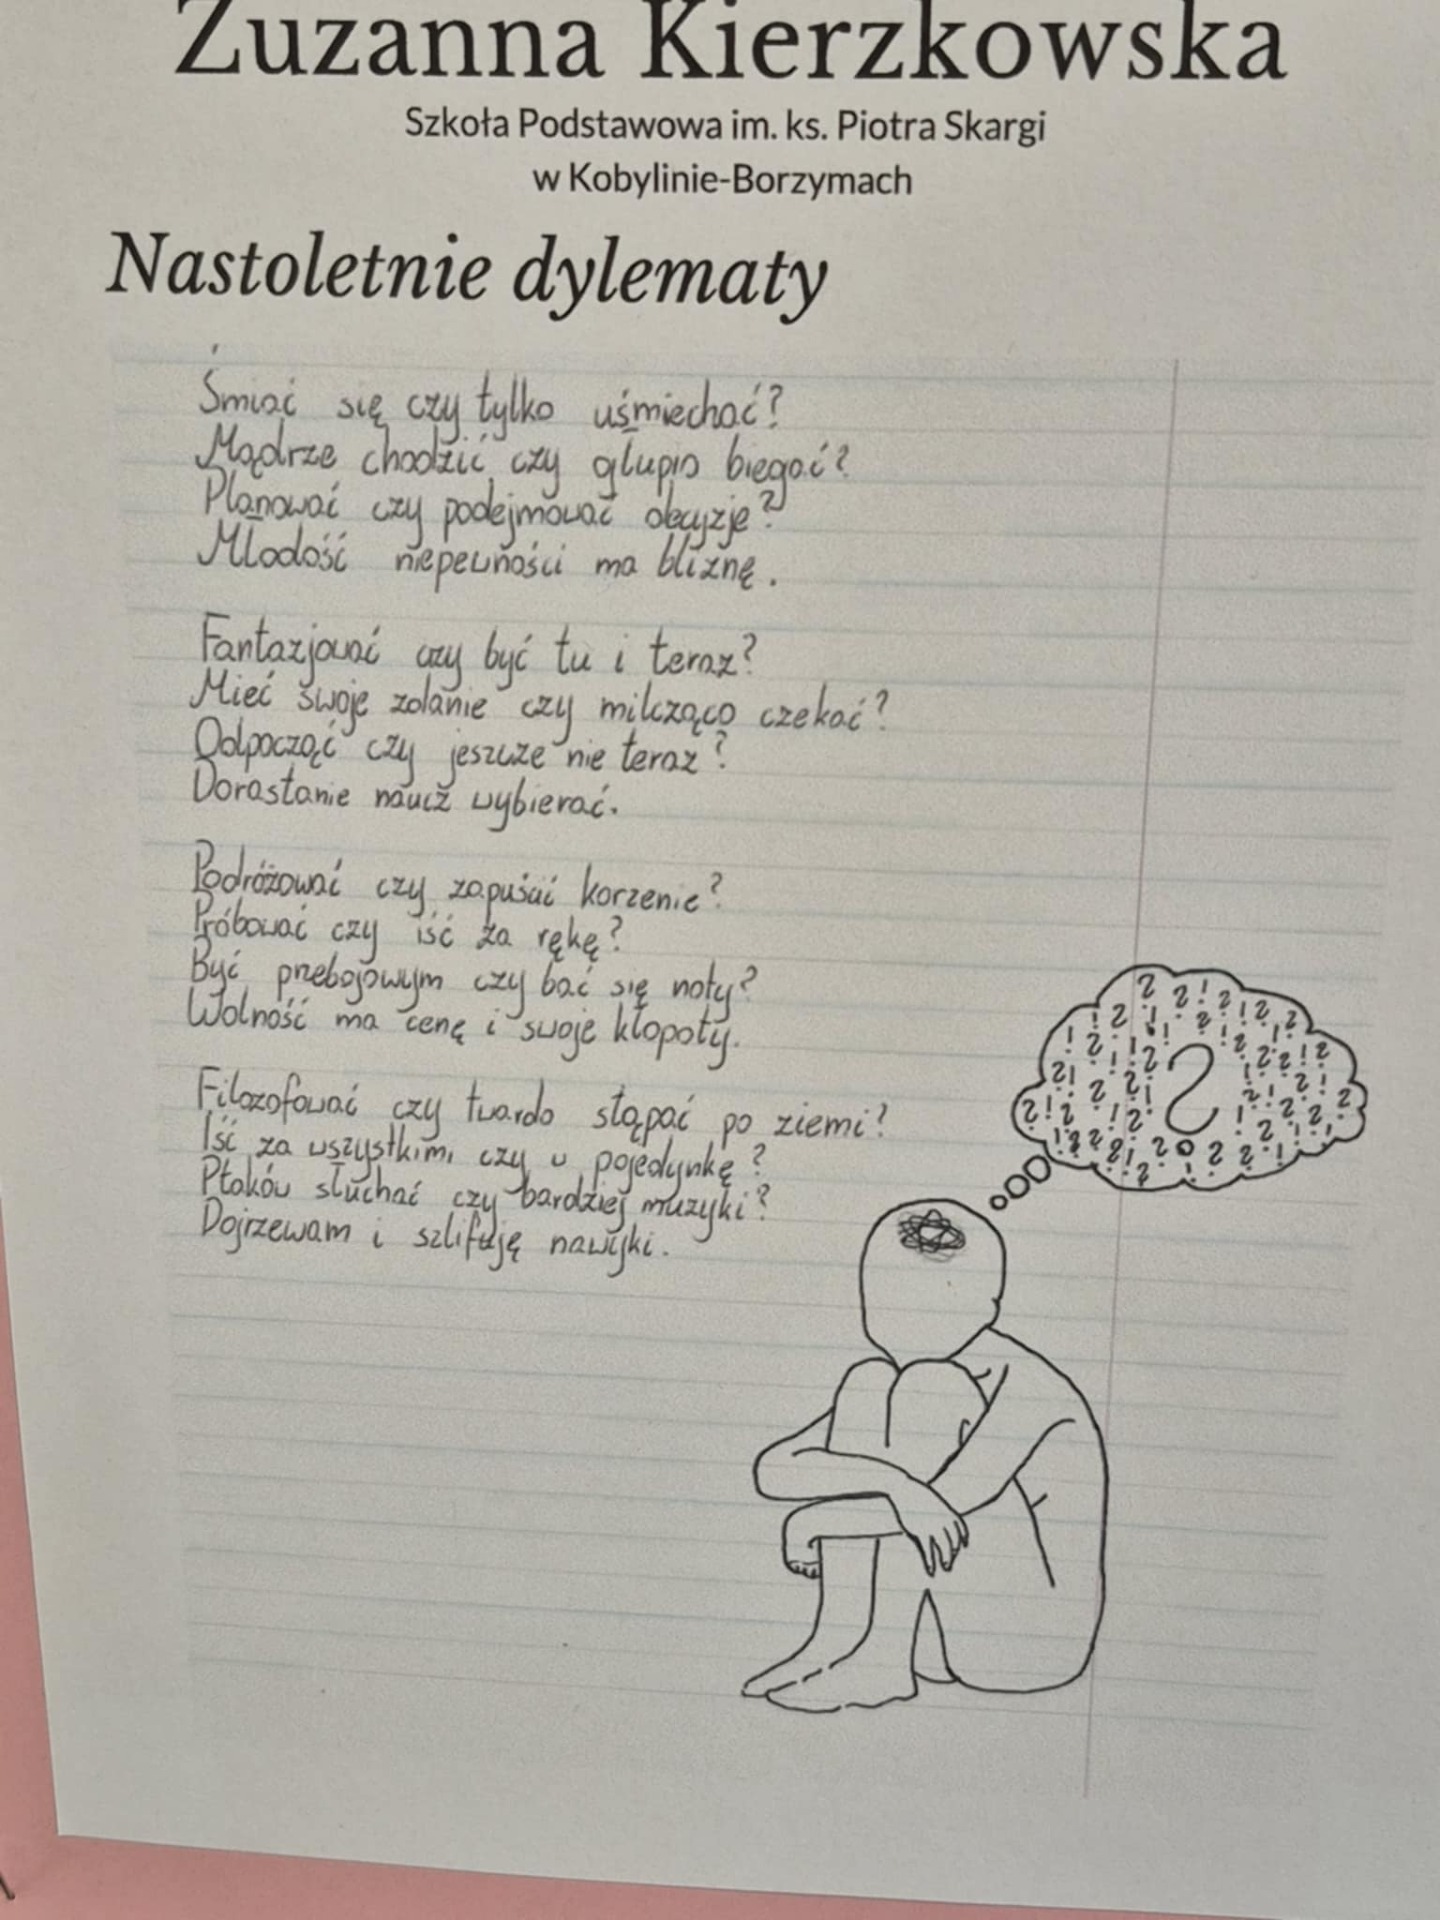 Zuzanna Kierzkowska
Szkoła Podstawowa im. ks. Piotra Skargi
w Kobylinie-Borzymach
Nastoletnie dylematy
Śmiać się czy tylko uśmiechać?
Mądrze chodzić czy głupio biegać?
Planować czy podejmować decyzję?
Młodość niepewności ma bliznę.
Fantazjować czy być tu i teraz?
Mieć swoje zdanie czy milcząco czekać?
Odpocząć czy jeszcze nie teraz?
Dorastanie naucz wybierać.
Podróżować czy zapuścić korzenie?
Próbować czy iść za rękę?
Być przebojowym czy bać się noty?
Wolność ma cenę i swoje kłopoty.
Filozofować czy twardo stąpać po ziemi?
Iść za wszystkimi czy w pojedynkę?
Ptaków słuchać czy bardziej muzyki?
Dojrzewam i szlifuję nawyki.